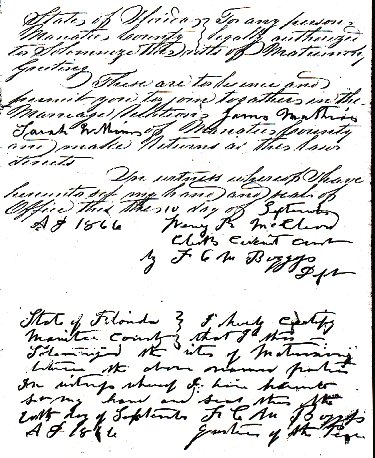 State of Florida } To any person
Manatee County } legally authorized
to Solemnize the rites of Matrimony
Greeting
These are to licence and
permit you to join togethers in the
Marriage Relations James Mathis
Sarah of Manatee County
and make Returns as the law
directs
In witness whereof I have
hereunto set my hand and seal of
Office this the 10 day of September
A D 1866 Henry R McLeod
Clerk Circuit Court
by F C M Boggess
Dept
State of Florida } I hereby Certify
Manatee County } that I this
Solemnized the rites of Matrimony
between the above named parties
In witness whereof I have hereunto
set my hand and seal this the
20th day of September F C M Boggess
A D 1866 Justice of the Peace